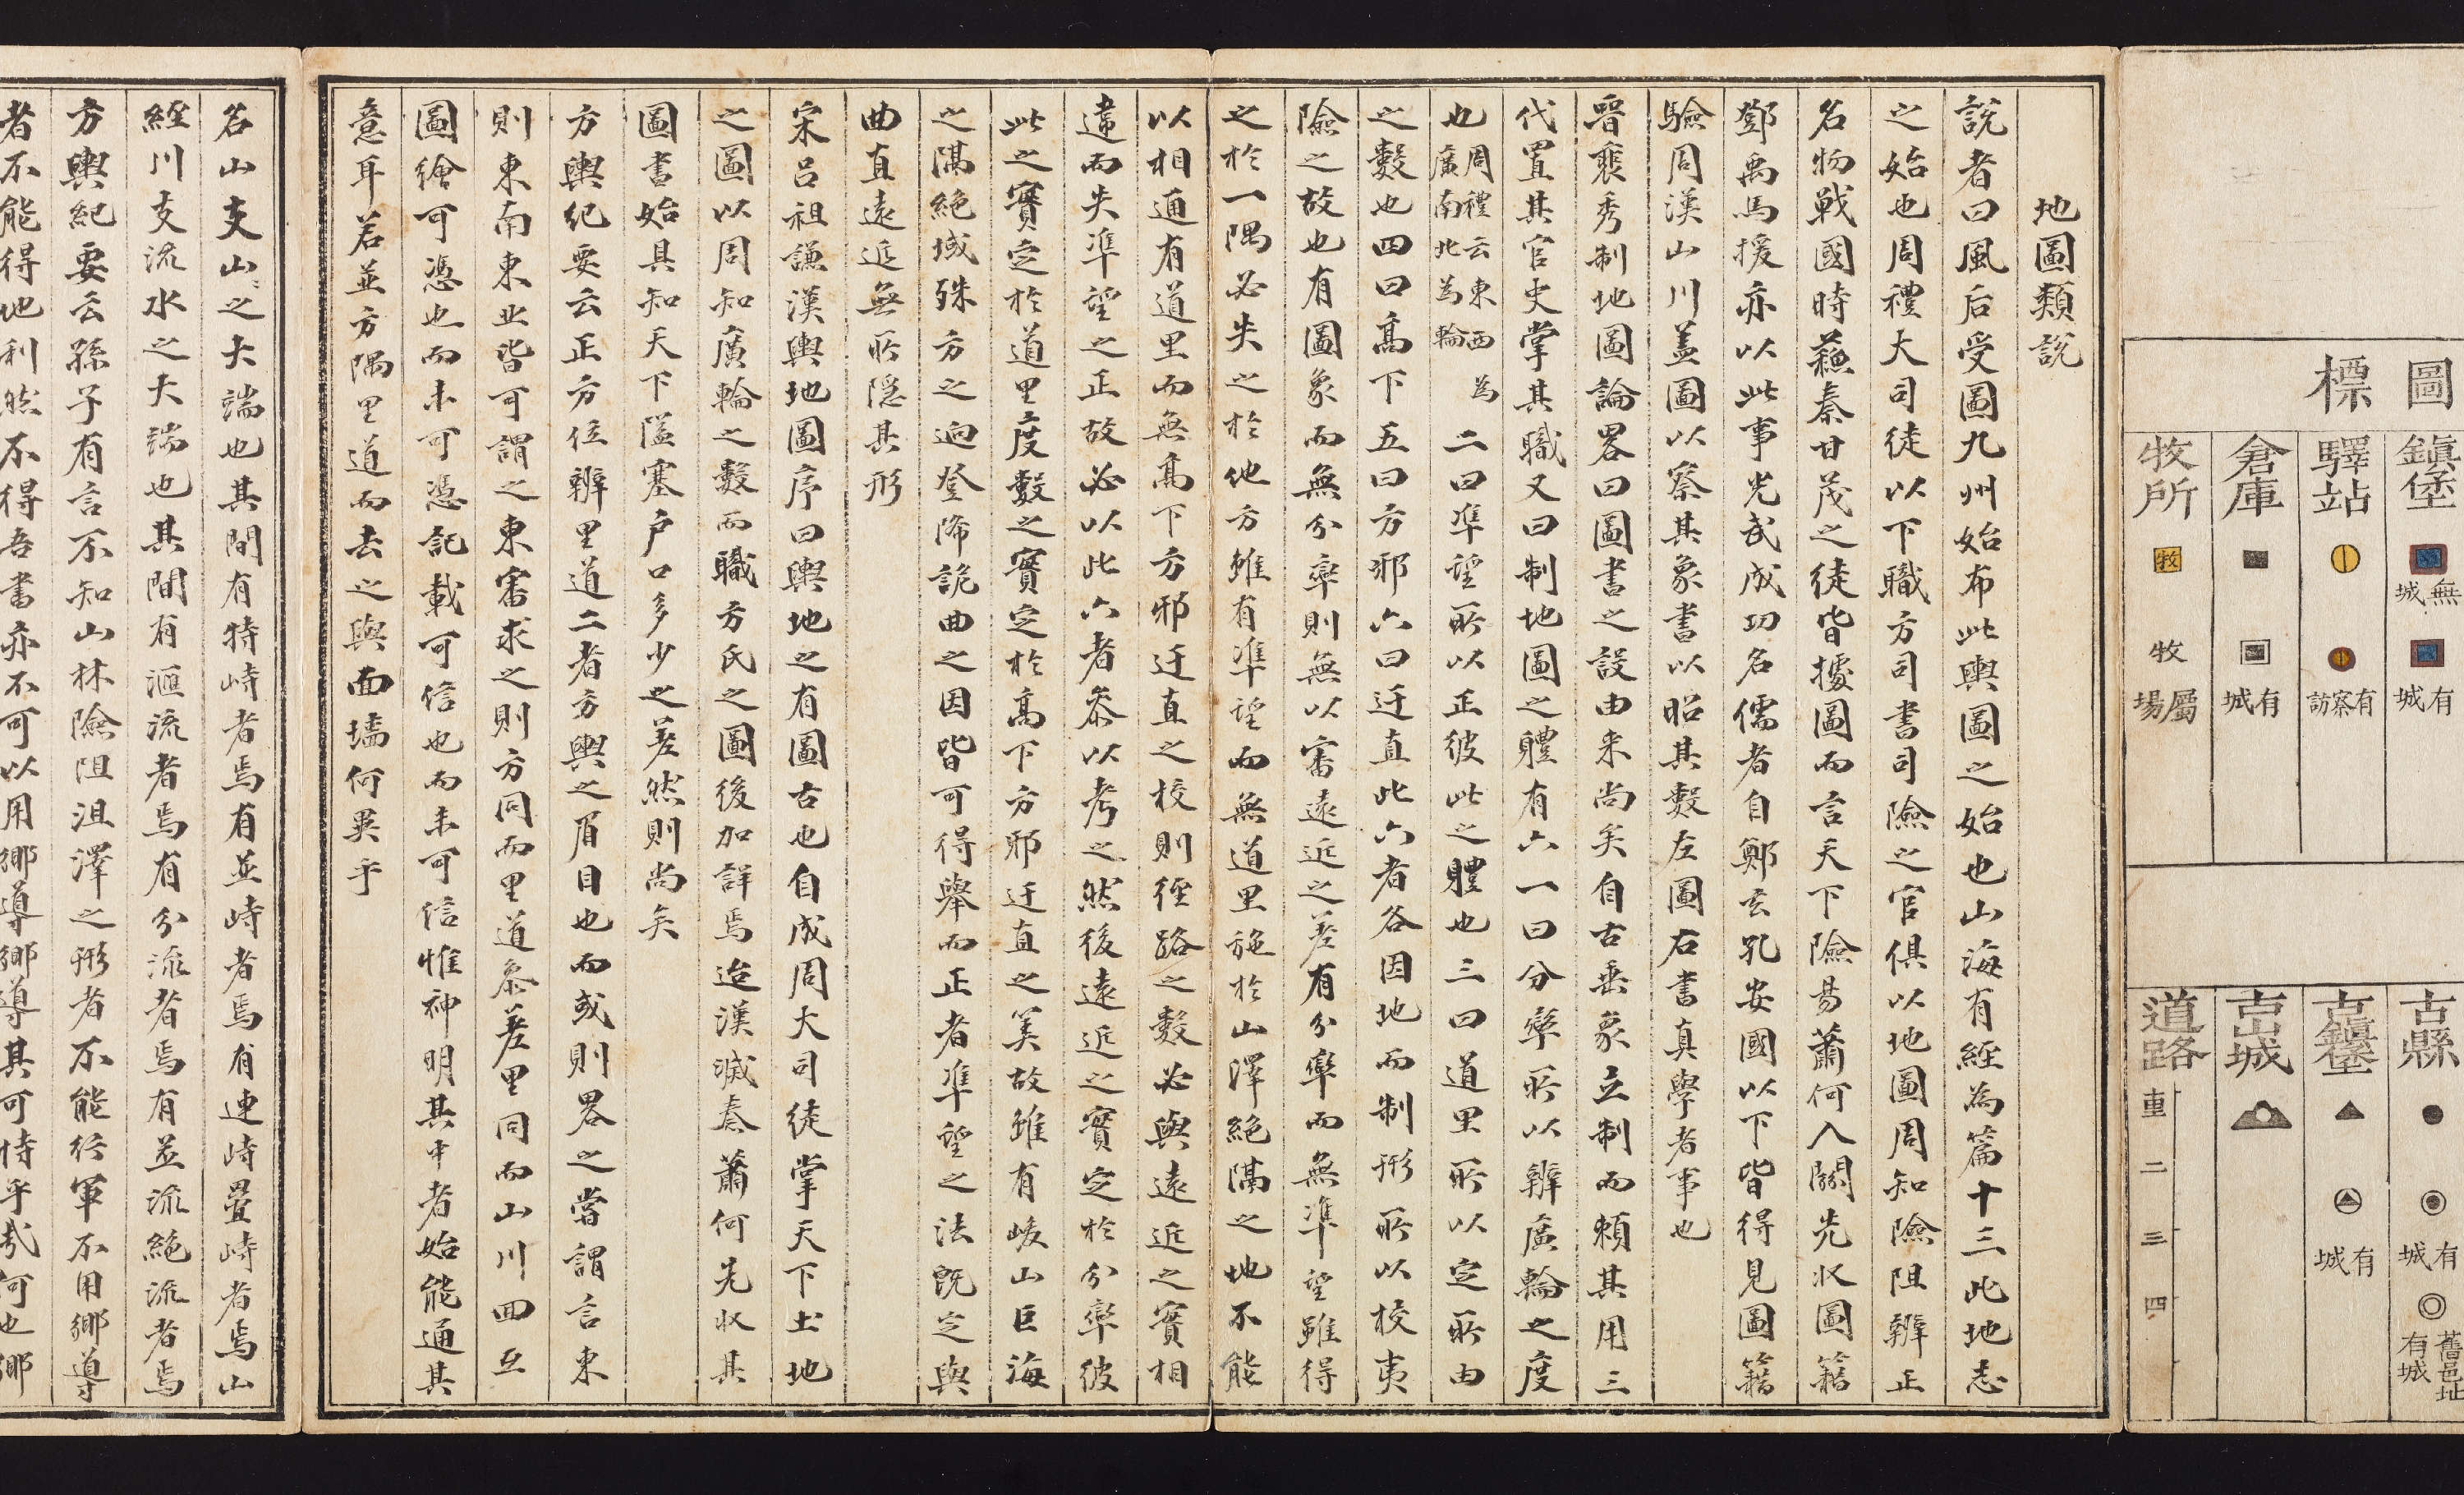 圖標
鎮堡
無城
有城
驛站
有察訪
倉庫
有城
牧所
牧
牧
屬場
古縣
有城
舊邑址有城
古鎮堡
有城
古山城
道路
重
二
三
四
地圖類說
說者曰風后受圖九州始布此輿圖之始也山海有經為篇十三此地志
之始也周禮大司徒以下職方司書司險之官俱以地圖周知險阻辨正
名物戰國時蘓秦甘茂之徒皆據圖而言天下險易蕭何入關先收圖籍
鄧禹馬援亦以此事光武成功名儒者自鄭玄孔安國以下皆得見圖籍
驗周漢山川盖圖以察其象書以昭其數左圖右書真學者事也
晋裴秀制地圖論畧曰圖書之設由来尚矣自古垂象立制而頼其用三
代置其官史掌其職又曰制地圖之軆有六一曰分率所以辨廣輪之度
也周禮云東西為廣南北為輪二曰準望所以正彼此之軆也三曰道里所以定所由
之數也四曰髙下五曰方邪六曰迂直此六者各因地而制形所以校夷
險之故也有圖象而無分率則無以審遠近之差有分率而無準望雖得
之於一隅必失之於他方雖有準望而無道里施於山澤絶隔之地不能
以相通有道里而無髙下方邪迂直之校則徑路之數必與遠近之實相
違而失準望之正故必以此六者叅以考之然後遠近之實定於分率彼
此之實定於道里度數之實定於髙下方邪迂直之筭故雖有峻山巨海
之隔絶域殊方之逈登降詭曲之因皆可得舉而正者準望之法旣定與
曲直遠近無所隠其形
宋呂祖謙漢輿地圖序曰輿地之有圖古也自成周大司徒掌天下土地
之圖以周知廣輪之數而職方氏之圖後加詳焉迨漢滅秦蕭何先収其
圖書始具知天下阨塞户口多少之差然則尚矣
方輿纪要云正方位辨里道二者方輿之眉目也而或則畧之嘗謂言東
則東南東北皆可謂之東審求之則方同而里道叅差里同而山川回互
圖繪可憑也而未可憑記載可信也而未可信惟神明其中者始能通其
意耳若並方隅里道而去之與面墻何異乎
名山支山之大端也其間有特峙者焉有並峙者焉有連峙疊峙者焉山
經川支流水之大端也其間有滙流者焉有分流者焉有並流絶流者焉
方輿紀要云孫子有言不知山林險阻沮澤之形者不能行軍不用鄉導
者不能得地利然不得吾書亦不可以用鄉導鄉導其可恃乎哉何也鄉